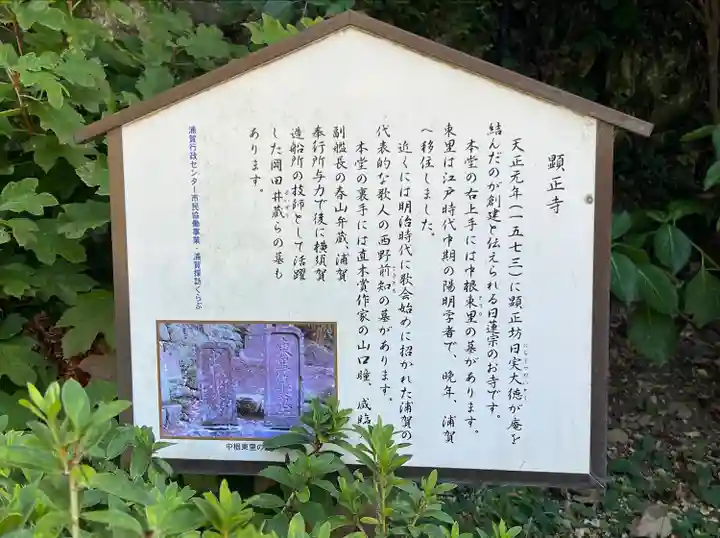 顕正寺
天正元年(一五七三)に顕正坊日実大徳が庵を
結んだのが創建と伝えられる日蓮宗のお寺です。
本堂の右上手には中根東里の墓があります。
東里は江戸時代中期の陽明学者で、晩年、浦賀
へ移住しました。
近くには明治時代に歌会始めに招かれた浦賀の
代表的な歌人の西野前知の墓があります。
本堂の裏手には直木賞作家の山口瞳、咸臨
副艦長の春山弁蔵、浦賀
奉行所与力で後に横須賀
造船所の技師として活躍
した岡田井蔵らの墓も
あります。
浦賀行政センター市民協働事業・浦賀探訪くらぶ
中根東里の